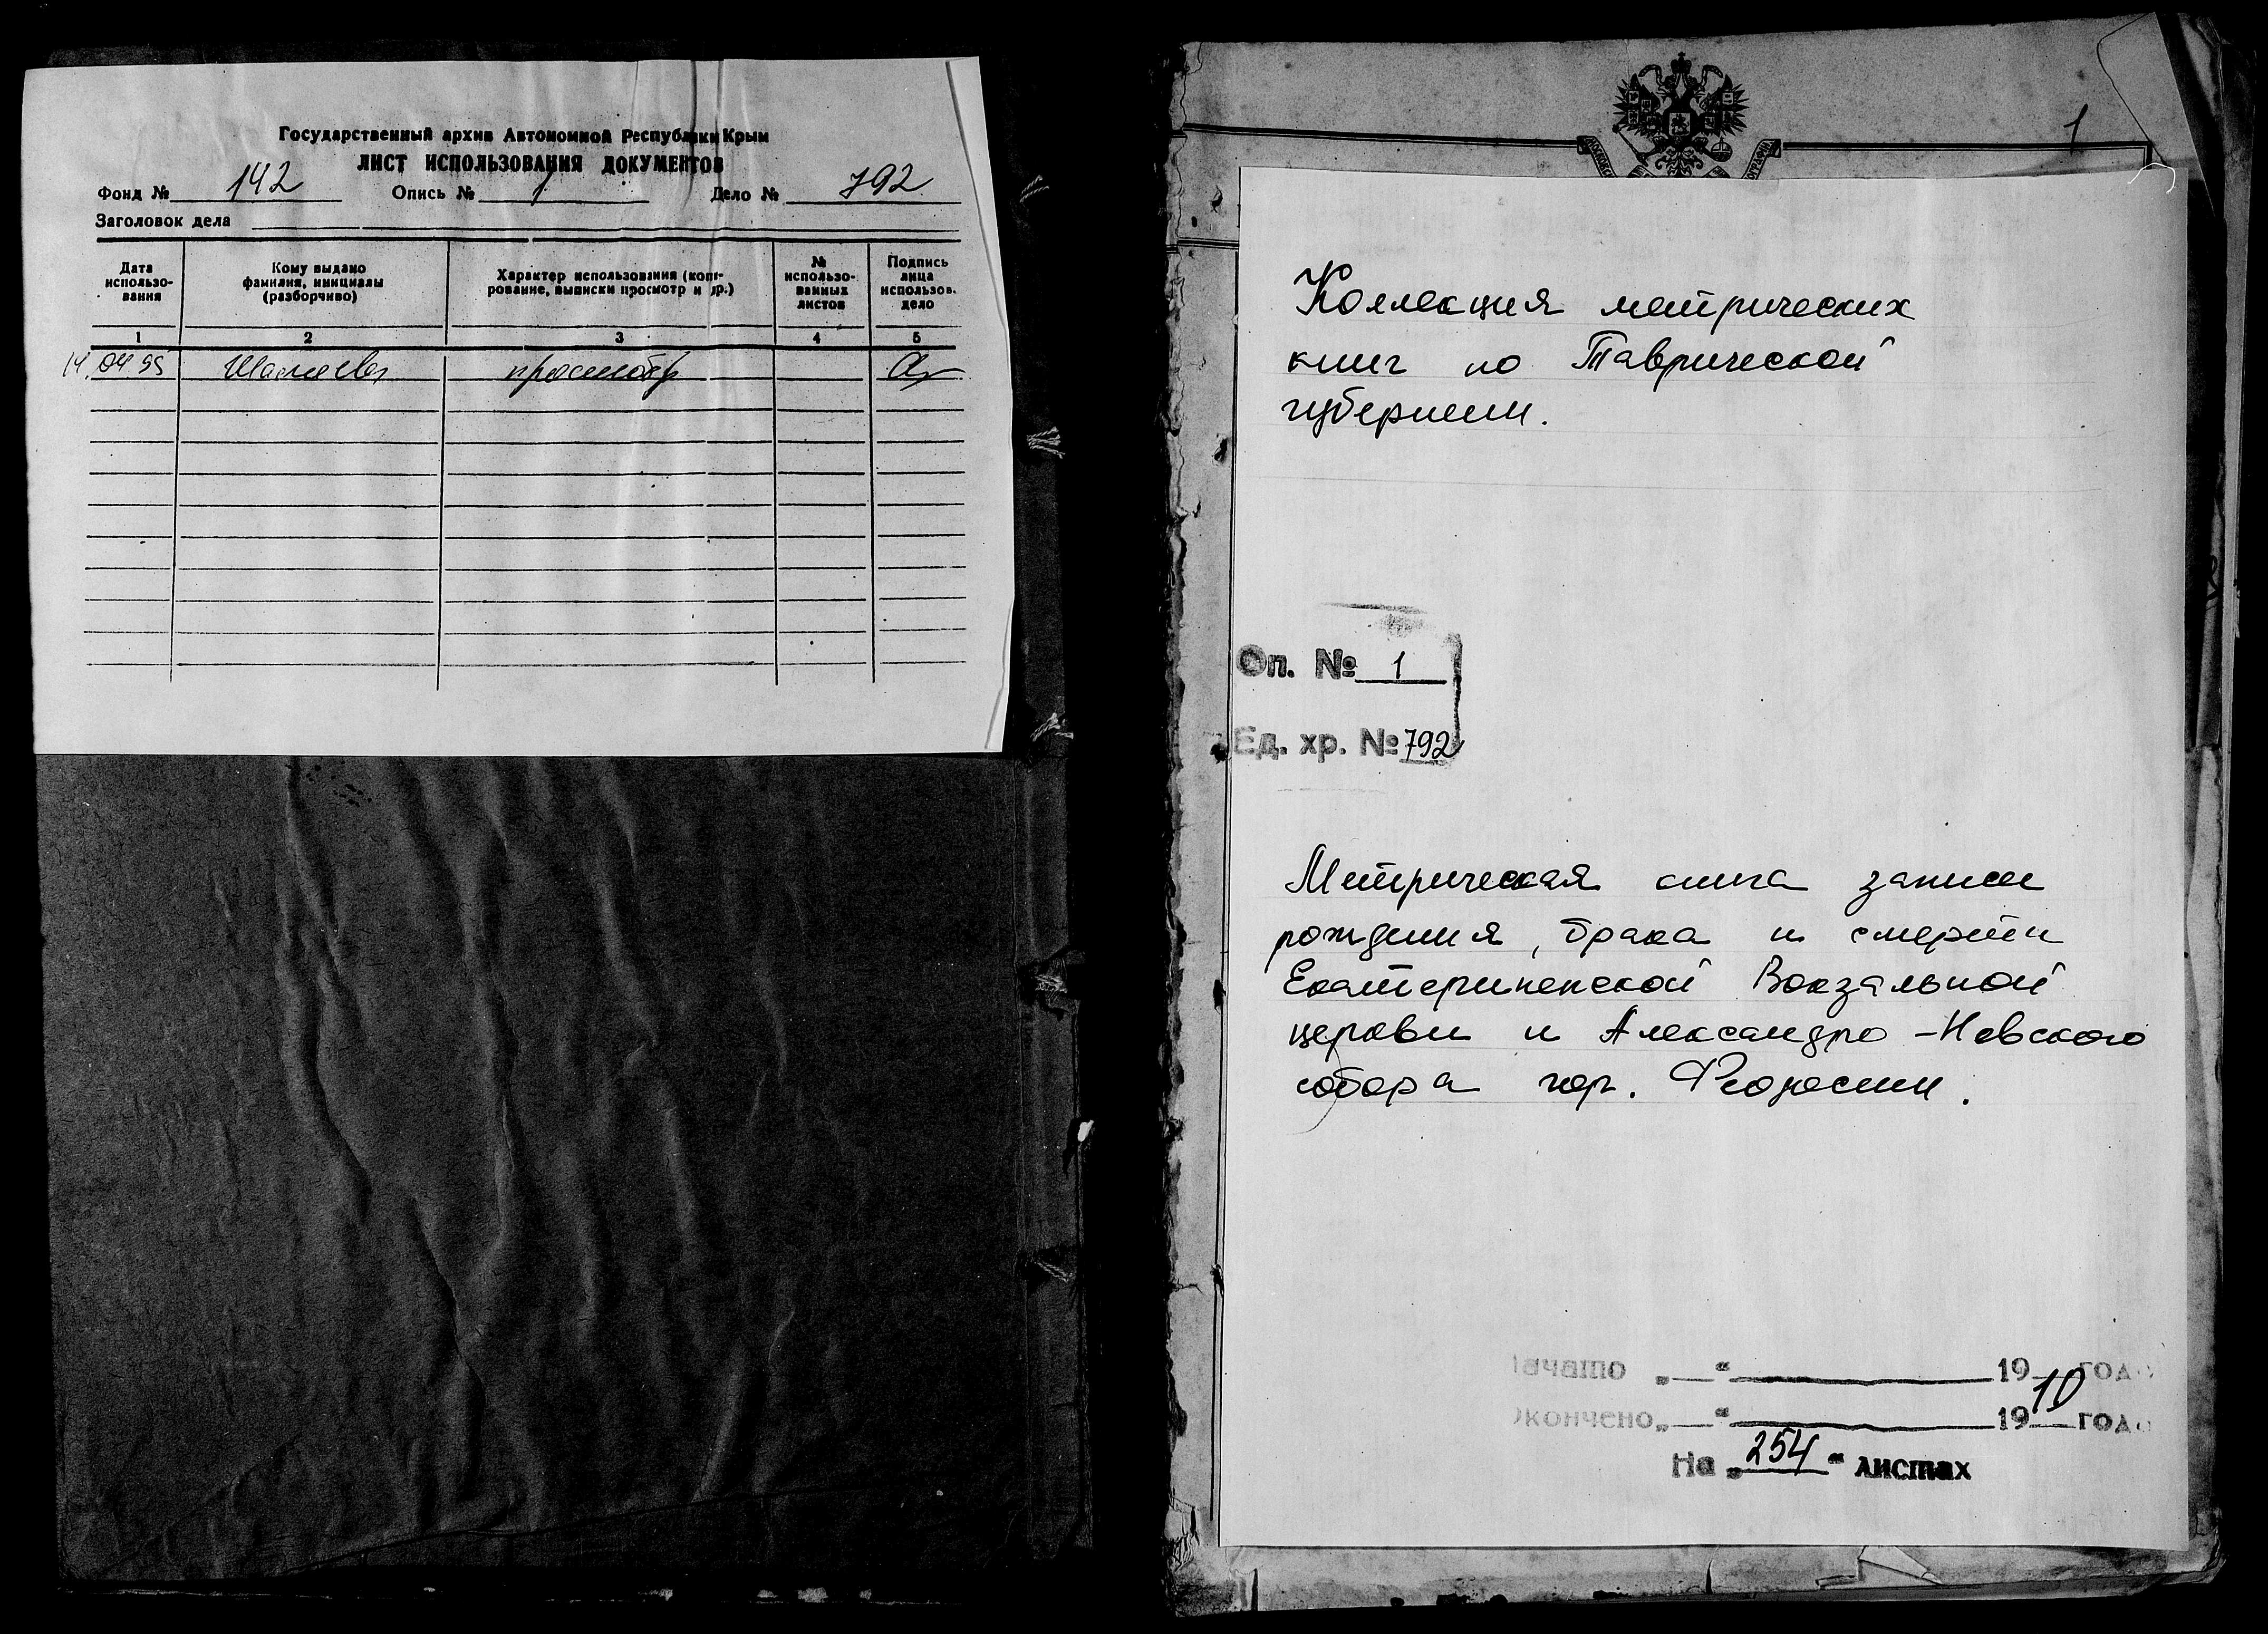 Государственный архив Автономной Республики Крым
ЛИСТ ИСПОЛЬЗОВАНИЯ ДОКУМЕНТОВ
Фонд № 142 Опись № 1 Дело № 792
Заголовок дела
Дата использо-вания Кому выдано фамилия, инициалы (разборчиво) Характер использования (копи-рование, выписки просмотр и др.) № использо-ванных листов Подпись лица использов. дело
1 2 3 4 5
14.04.95 просмотр
1
Коллекция метрических
книг по Таврической
губернии.
Оп. № 1
Ед. хр. № 792
Метрическая книга записи
рождения, брака и смерти
Екатерининской Вокзальной
церкви и Александро-Невского
собора гор. Феодосии.
Начато „ “ 19 года
Окончено „ “ 1910 года
На „254“ листах